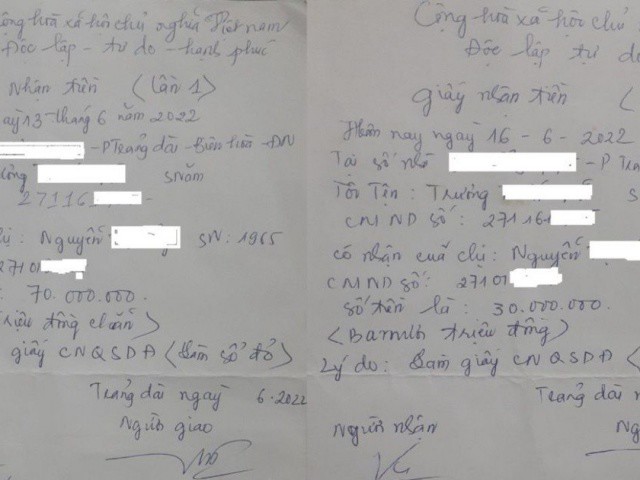 Cộng hoà xã hội chủ nghĩa Việt nam
Độc lập - tự do - hạnh phúc
Nhận tiền (lần 1)
ày 13 tháng 6 năm 2022
- P Trảng dài - Biên hoà - ĐN
ông sn năm
27116
hị: Nguyễn SN: 1965
27101
: 70.000.000.
riệu đồng chẵn)
giấy CNQSDĐ (Làm sổ đỏ)
Trảng dài ngày 6-2022
Người giao
Cộng hoà xã hội chủ
Độc lập tự do
giấy nhận tiền (
Hôm nay ngày 16 - 6 - 2022
Tại số nhà - P Tra
Tôi Tên: Trương S
CMND số: 271161
có nhận của chị: Nguyễn
CMND số: 27101
số tiền là: 30.000.000.
(Ba mươi triệu đồng)
Lý do: Làm giấy CNQSDĐ (
Trảng dài n
Người nhận
Ng